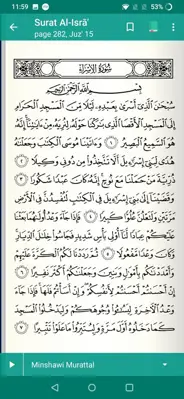 11:59
Surat Al-Isrā'
page 282, Juz' 15
سُورَةُ الإِسْرَاءِ
بِسْمِ ٱللَّهِ ٱلرَّحْمَٰنِ ٱلرَّحِيمِ
سُبْحَٰنَ ٱلَّذِىٓ أَسْرَىٰ بِعَبْدِهِۦ لَيْلًا مِّنَ ٱلْمَسْجِدِ ٱلْحَرَامِ
إِلَى ٱلْمَسْجِدِ ٱلْأَقْصَا ٱلَّذِى بَٰرَكْنَا حَوْلَهُۥ لِنُرِيَهُۥ مِنْ ءَايَٰتِنَآ إِنَّهُۥ
هُوَ ٱلسَّمِيعُ ٱلْبَصِيرُ ١ وَءَاتَيْنَا مُوسَى ٱلْكِتَٰبَ وَجَعَلْنَٰهُ
هُدًى لِّبَنِىٓ إِسْرَٰٓءِيلَ أَلَّا تَتَّخِذُوا۟ مِن دُونِى وَكِيلًا ٢
ذُرِّيَّةَ مَنْ حَمَلْنَا مَعَ نُوحٍ إِنَّهُۥ كَانَ عَبْدًا شَكُورًا ٣
وَقَضَيْنَآ إِلَىٰ بَنِىٓ إِسْرَٰٓءِيلَ فِى ٱلْكِتَٰبِ لَتُفْسِدُنَّ فِى ٱلْأَرْضِ
مَرَّتَيْنِ وَلَتَعْلُنَّ عُلُوًّا كَبِيرًا ٤ فَإِذَا جَآءَ وَعْدُ أُولَىٰهُمَا بَعَثْنَا
عَلَيْكُمْ عِبَادًا لَّنَآ أُو۟لِى بَأْسٍ شَدِيدٍ فَجَاسُوا۟ خِلَٰلَ ٱلدِّيَارِ
وَكَانَ وَعْدًا مَّفْعُولًا ٥ ثُمَّ رَدَدْنَا لَكُمُ ٱلْكَرَّةَ عَلَيْهِمْ
وَأَمْدَدْنَٰكُم بِأَمْوَٰلٍ وَبَنِينَ وَجَعَلْنَٰكُمْ أَكْثَرَ نَفِيرًا ٦
إِنْ أَحْسَنتُمْ أَحْسَنتُمْ لِأَنفُسِكُمْ وَإِنْ أَسَأْتُمْ فَلَهَا فَإِذَا جَآءَ
وَعْدُ ٱلْءَاخِرَةِ لِيَسُۥٓـُٔوا۟ وُجُوهَكُمْ وَلِيَدْخُلُوا۟ ٱلْمَسْجِدَ
كَمَا دَخَلُوهُ أَوَّلَ مَرَّةٍ وَلِيُتَبِّرُوا۟ مَا عَلَوْا۟ تَتْبِيرًا ٧
Minshawi Murattal